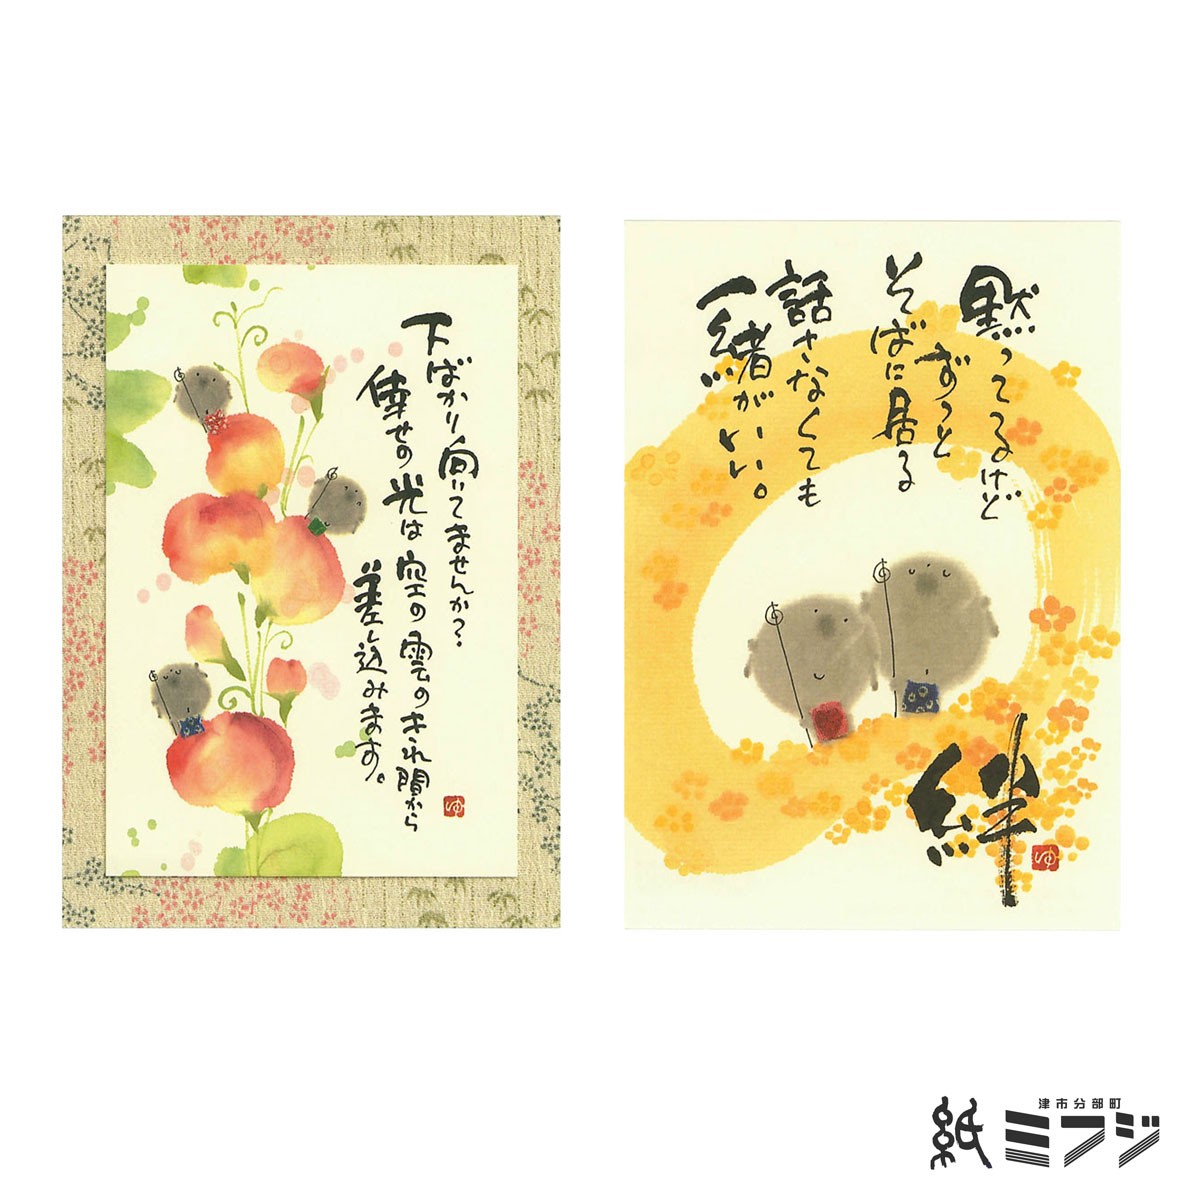 下ばかり向いてませんか？
倖せの光は空の雲のきれ間から
差し込みます。
ゆ
黙ってるけど
ずっと
そばに居る
話さなくても
一緒がいい。
絆
ゆ
津市分部町
紙ミフジ